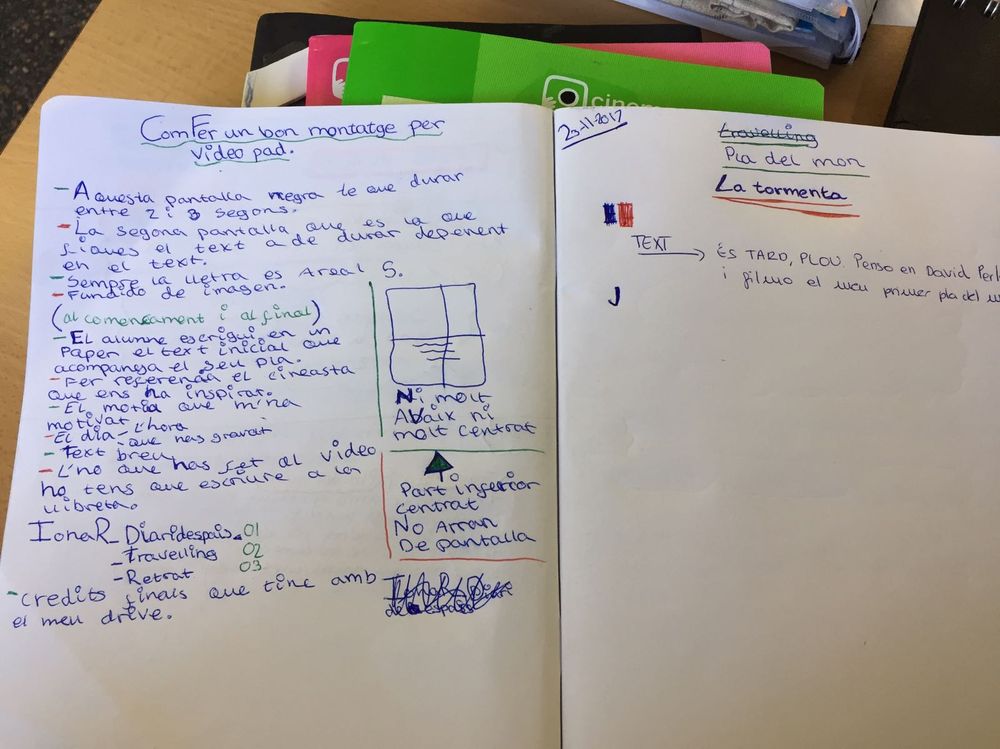 cinem
ComFer un bon montatge per
Video pad.
- Aquesta pantalla negra te que durar
entre 2 i 3 segons.
- La segona pantalla que es la que
fiques el text a de durar depenent
en el text.
- Sempre la lletra es Areal 5.
- Fundido de imagen.
(al comencament i al final)
- El alumne escrigui en un
Paper el text inicial que
acompanya el seu pla.
- Fer referencia el cineasta
que ens ha inspirat.
- El motiu que m'ha
motivat
- El dia - L'hora
que has gravat
- Text breu
- L'no que has fet al video
ho tens que escriure a la
llibreta.
IonaR_Diaridespais_01
- Travelling 02
- Retrat 03
- credits finals que tinc amb
el meu drive.
Ni molt
Abaix ni
molt centrat
Part inferior
centrat
No Arran
De pantalla
20-11-2017
travelling
Pla del mon
La tormenta
TEXT → ÉS TARD, PLOU. Penso en David Perl
i filmo el meu primer pla del m